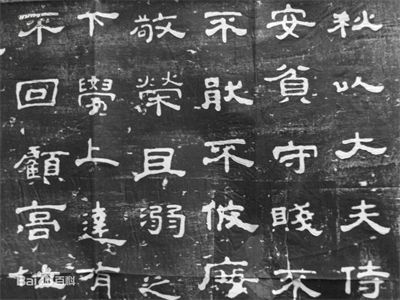 秋以大夫侍
安貧守賤不
不猒不攸廉
敬榮且溺之
下學上達有
不回顧高
Baidu百科